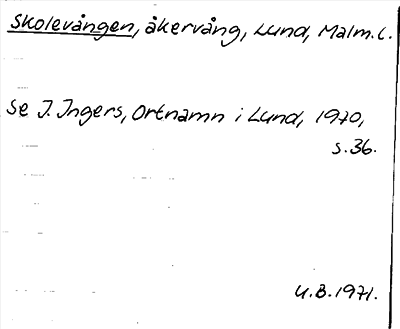 Skolevången, åkervång, Lund, Malm. l.
Se J. Ingers, Ortnamn i Lund, 1970,
s. 36.
U.B. 1971.